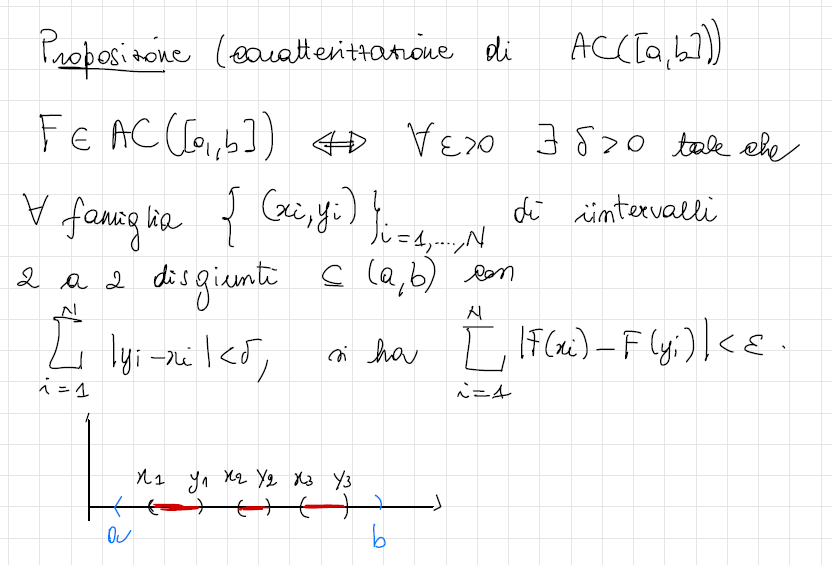 Proposizione (caratterizzazione di AC([a,b]))
F ∈ AC([a,b]) ⟺ ∀ ε>0 ∃ δ>0 tale che
∀ famiglia { (xi,yi) }i=1,...,N di intervalli
2 a 2 disgiunti ⊆ (a,b) con
∑_{i=1}^{N} |yi-xi|<δ, si ha ∑_{i=1}^{N} |F(xi)-F(yi)|<ε.
x1 y1 x2 y2 x3 y3
a b